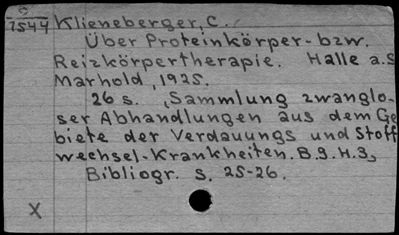 7544 Klieneberger, C.
Über Proteinkörper- bzw.
Reizkörpertherapie. Halle a.S
Marhold, 1925.
26 s. (Sammlung zwanglo-
ser Abhandlungen aus dem Ge
biete der Verdauungs und Stoff
wechsel-Krankheiten. B.9. H.3)
Bibliogr. s. 25-26.
X